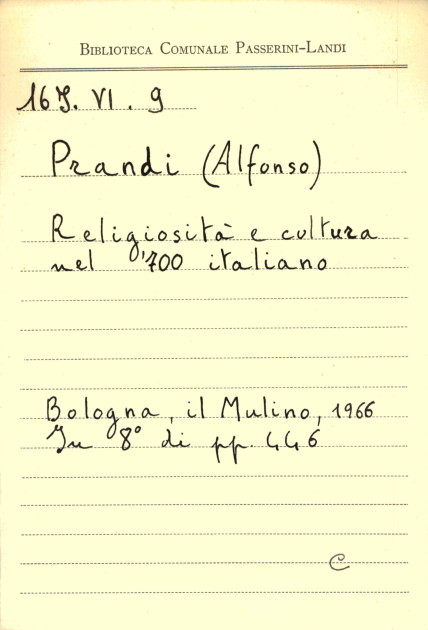 BIBLIOTECA COMUNALE PASSERINI-LANDI
16 S. VI. 9
Prandi (Alfonso)
Religiosità e cultura
nel '700 italiano
Bologna, il Mulino, 1966
In 8° di pp. 446
C